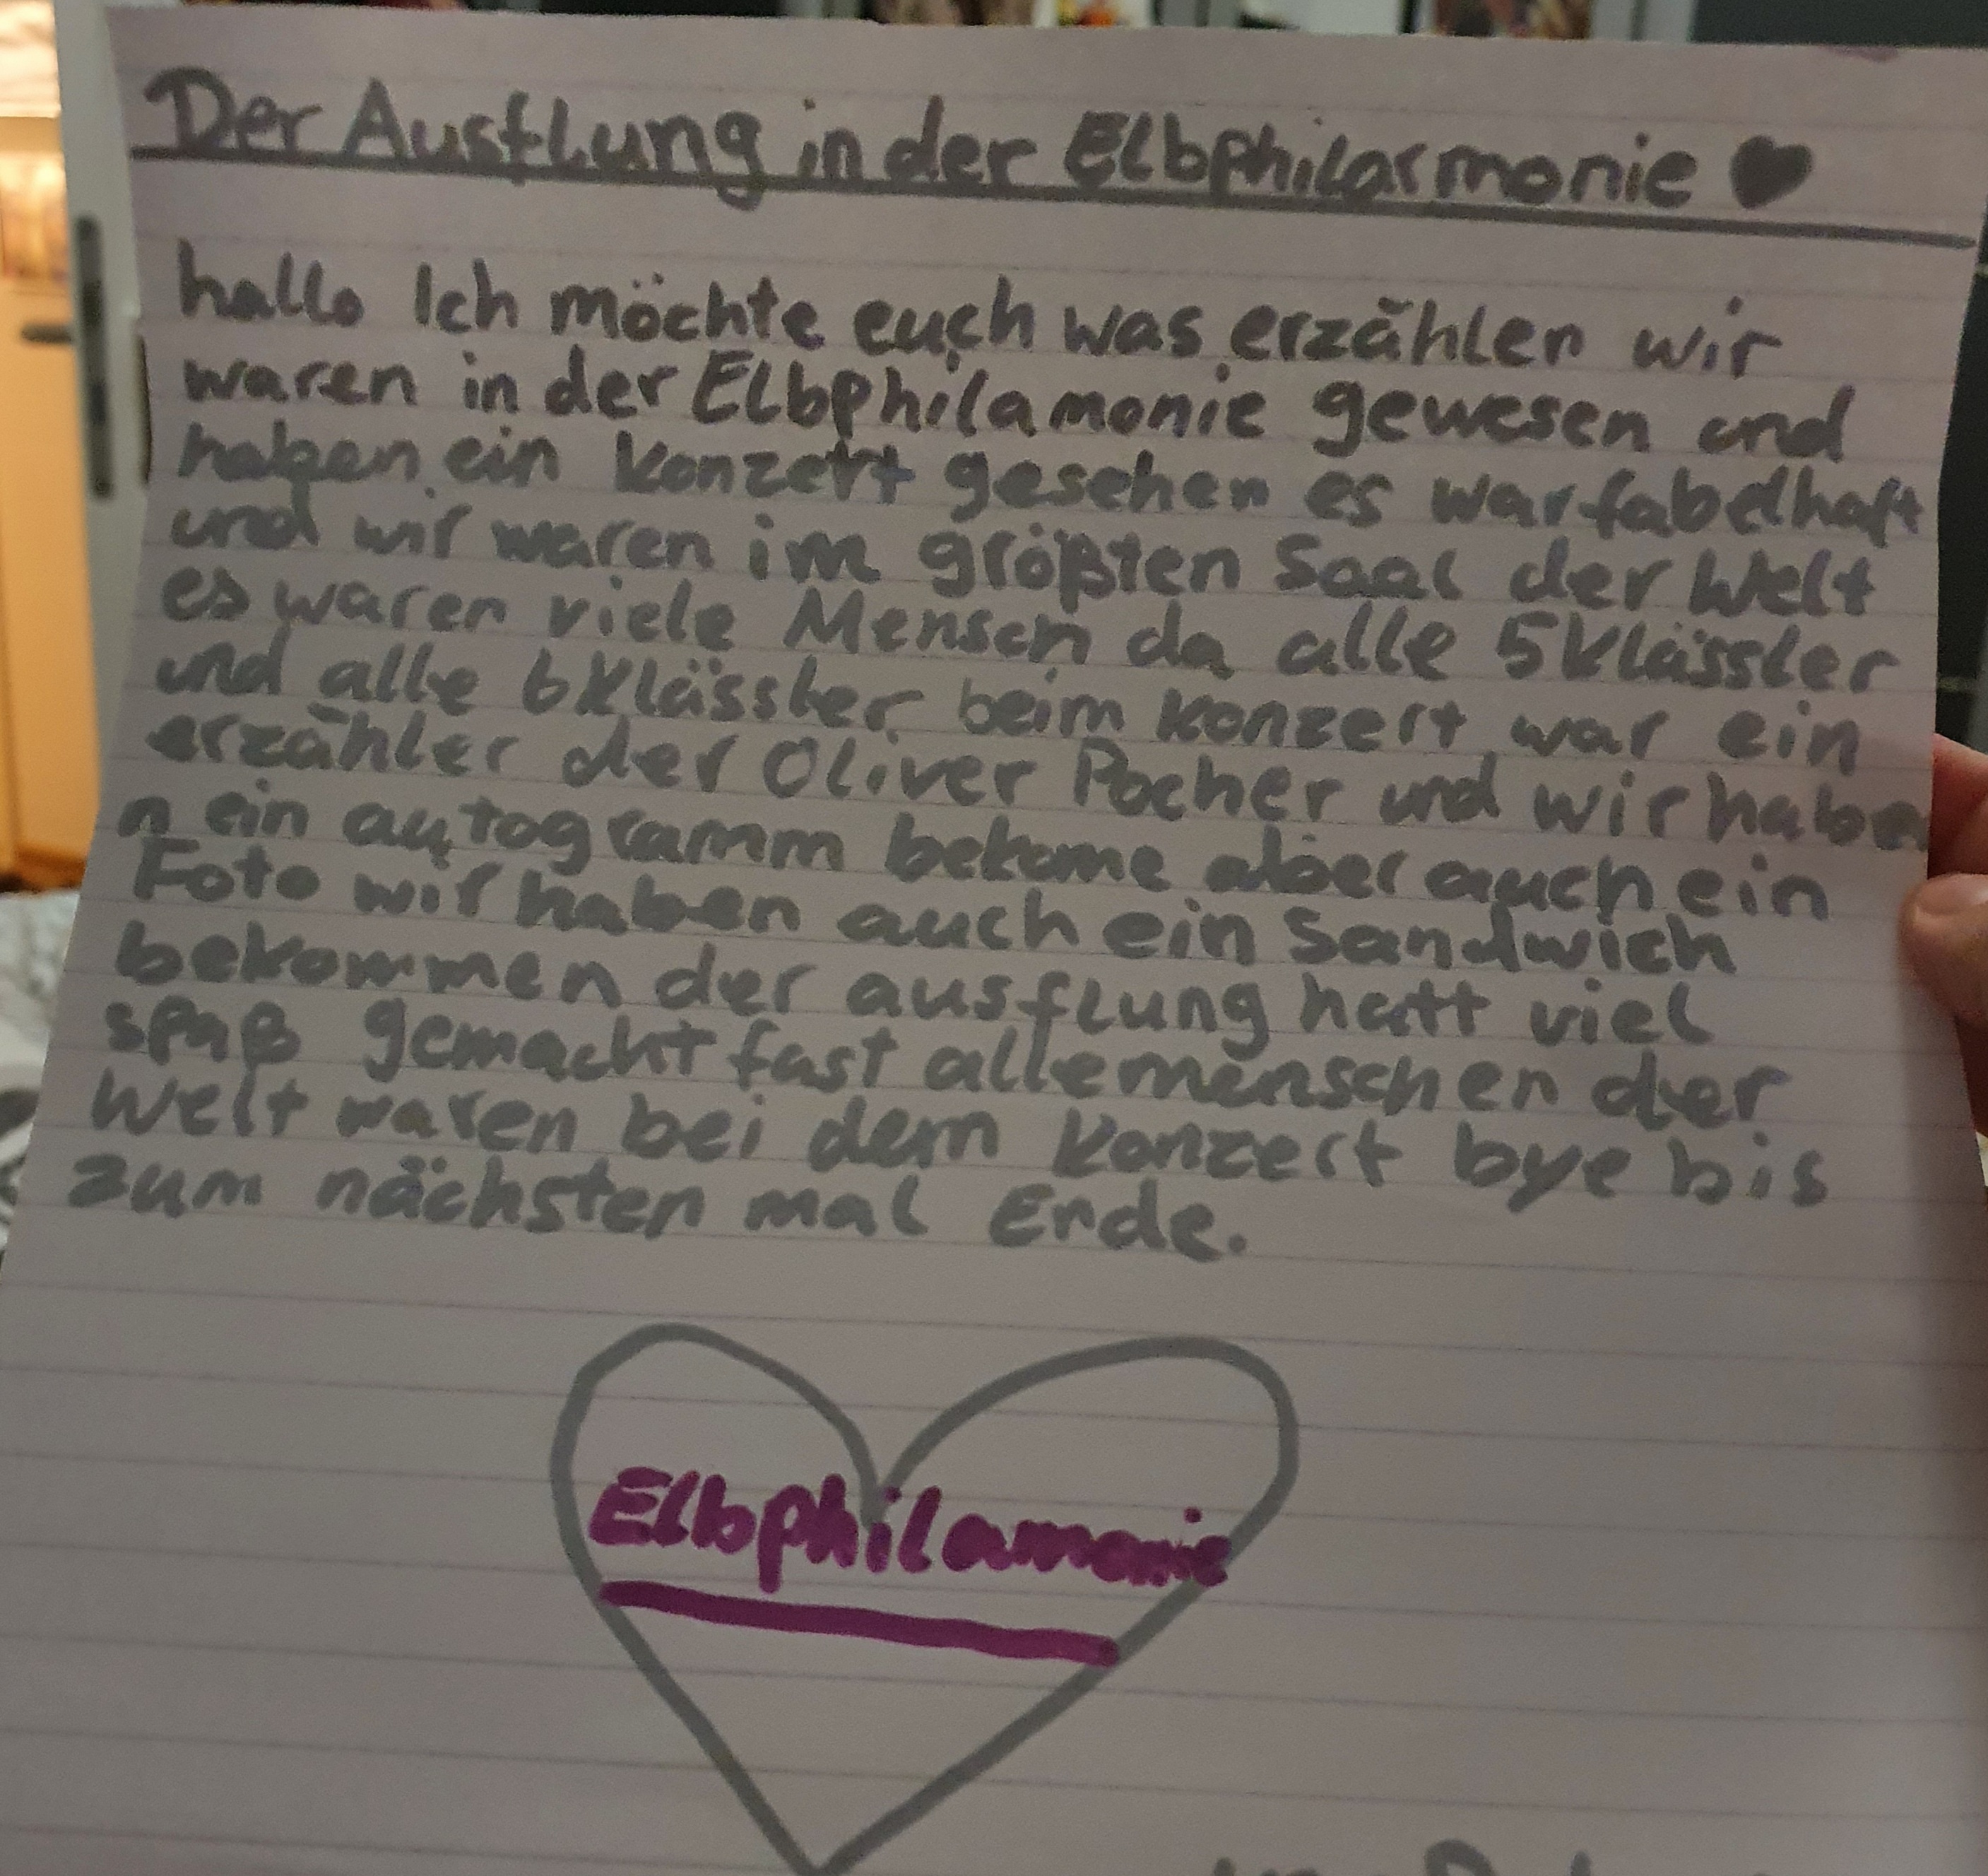 Der Ausflung in der Elbphilarmonie ♥
hallo Ich möchte euch was erzählen wir
waren in der Elbphilamonie gewesen und
haben ein Konzert gesehen es war fabelhaft
und wir waren im größten Saal der Welt
es waren viele Mensch da alle 5Klässler
und alle 6Klässler beim Konzert war ein
erzähler der Oliver Pocher und wir habe
n ein autogramm bekome aber auch ein
Foto wir haben auch ein Sandwich
bekommen der ausflung hatt viel
spaß gemacht fast alle menschen der
Welt waren bei dem Konzert bye bis
zum nächsten mal Ende.
Elbphilamonie